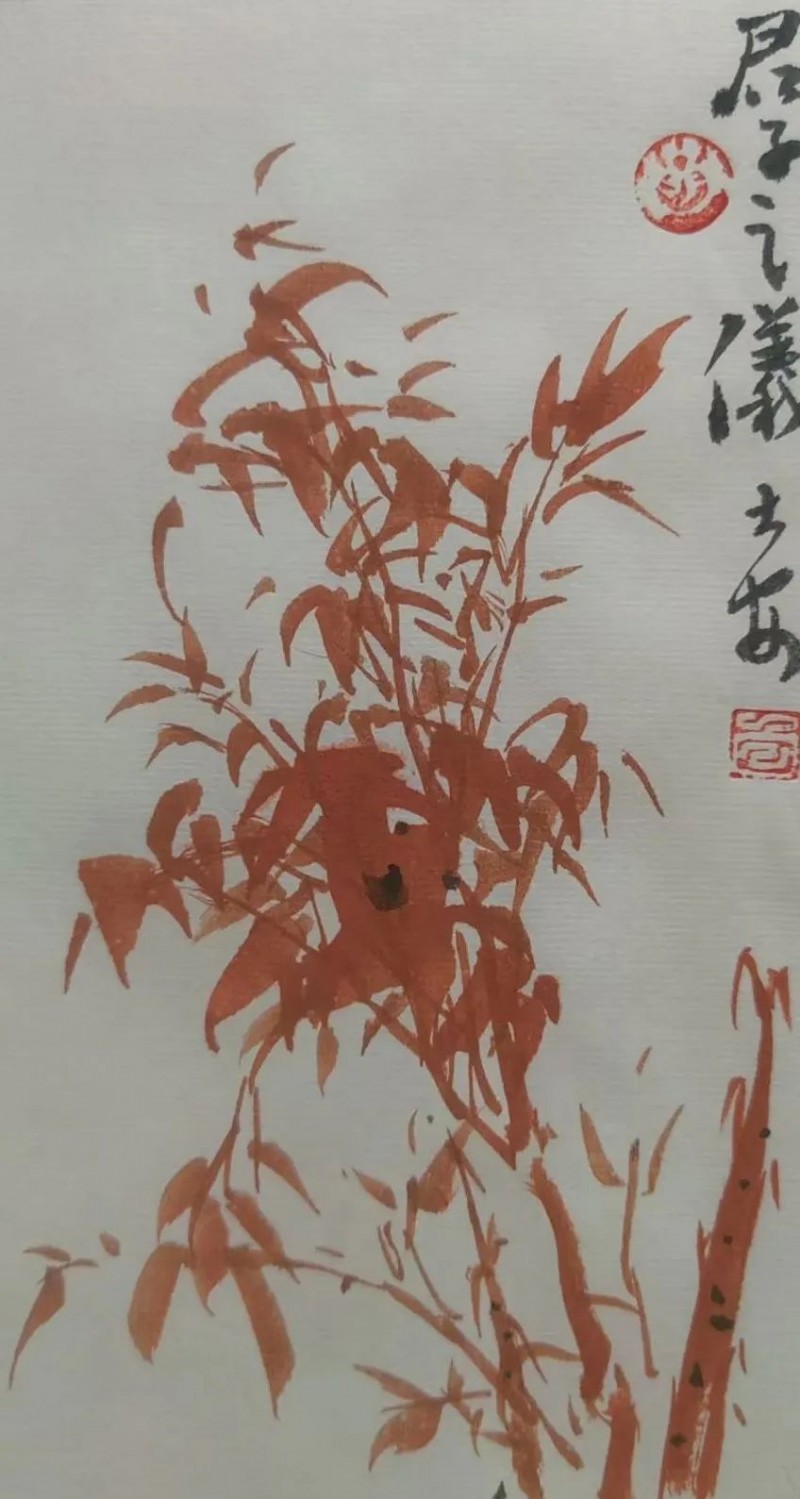 君子之儀 士安